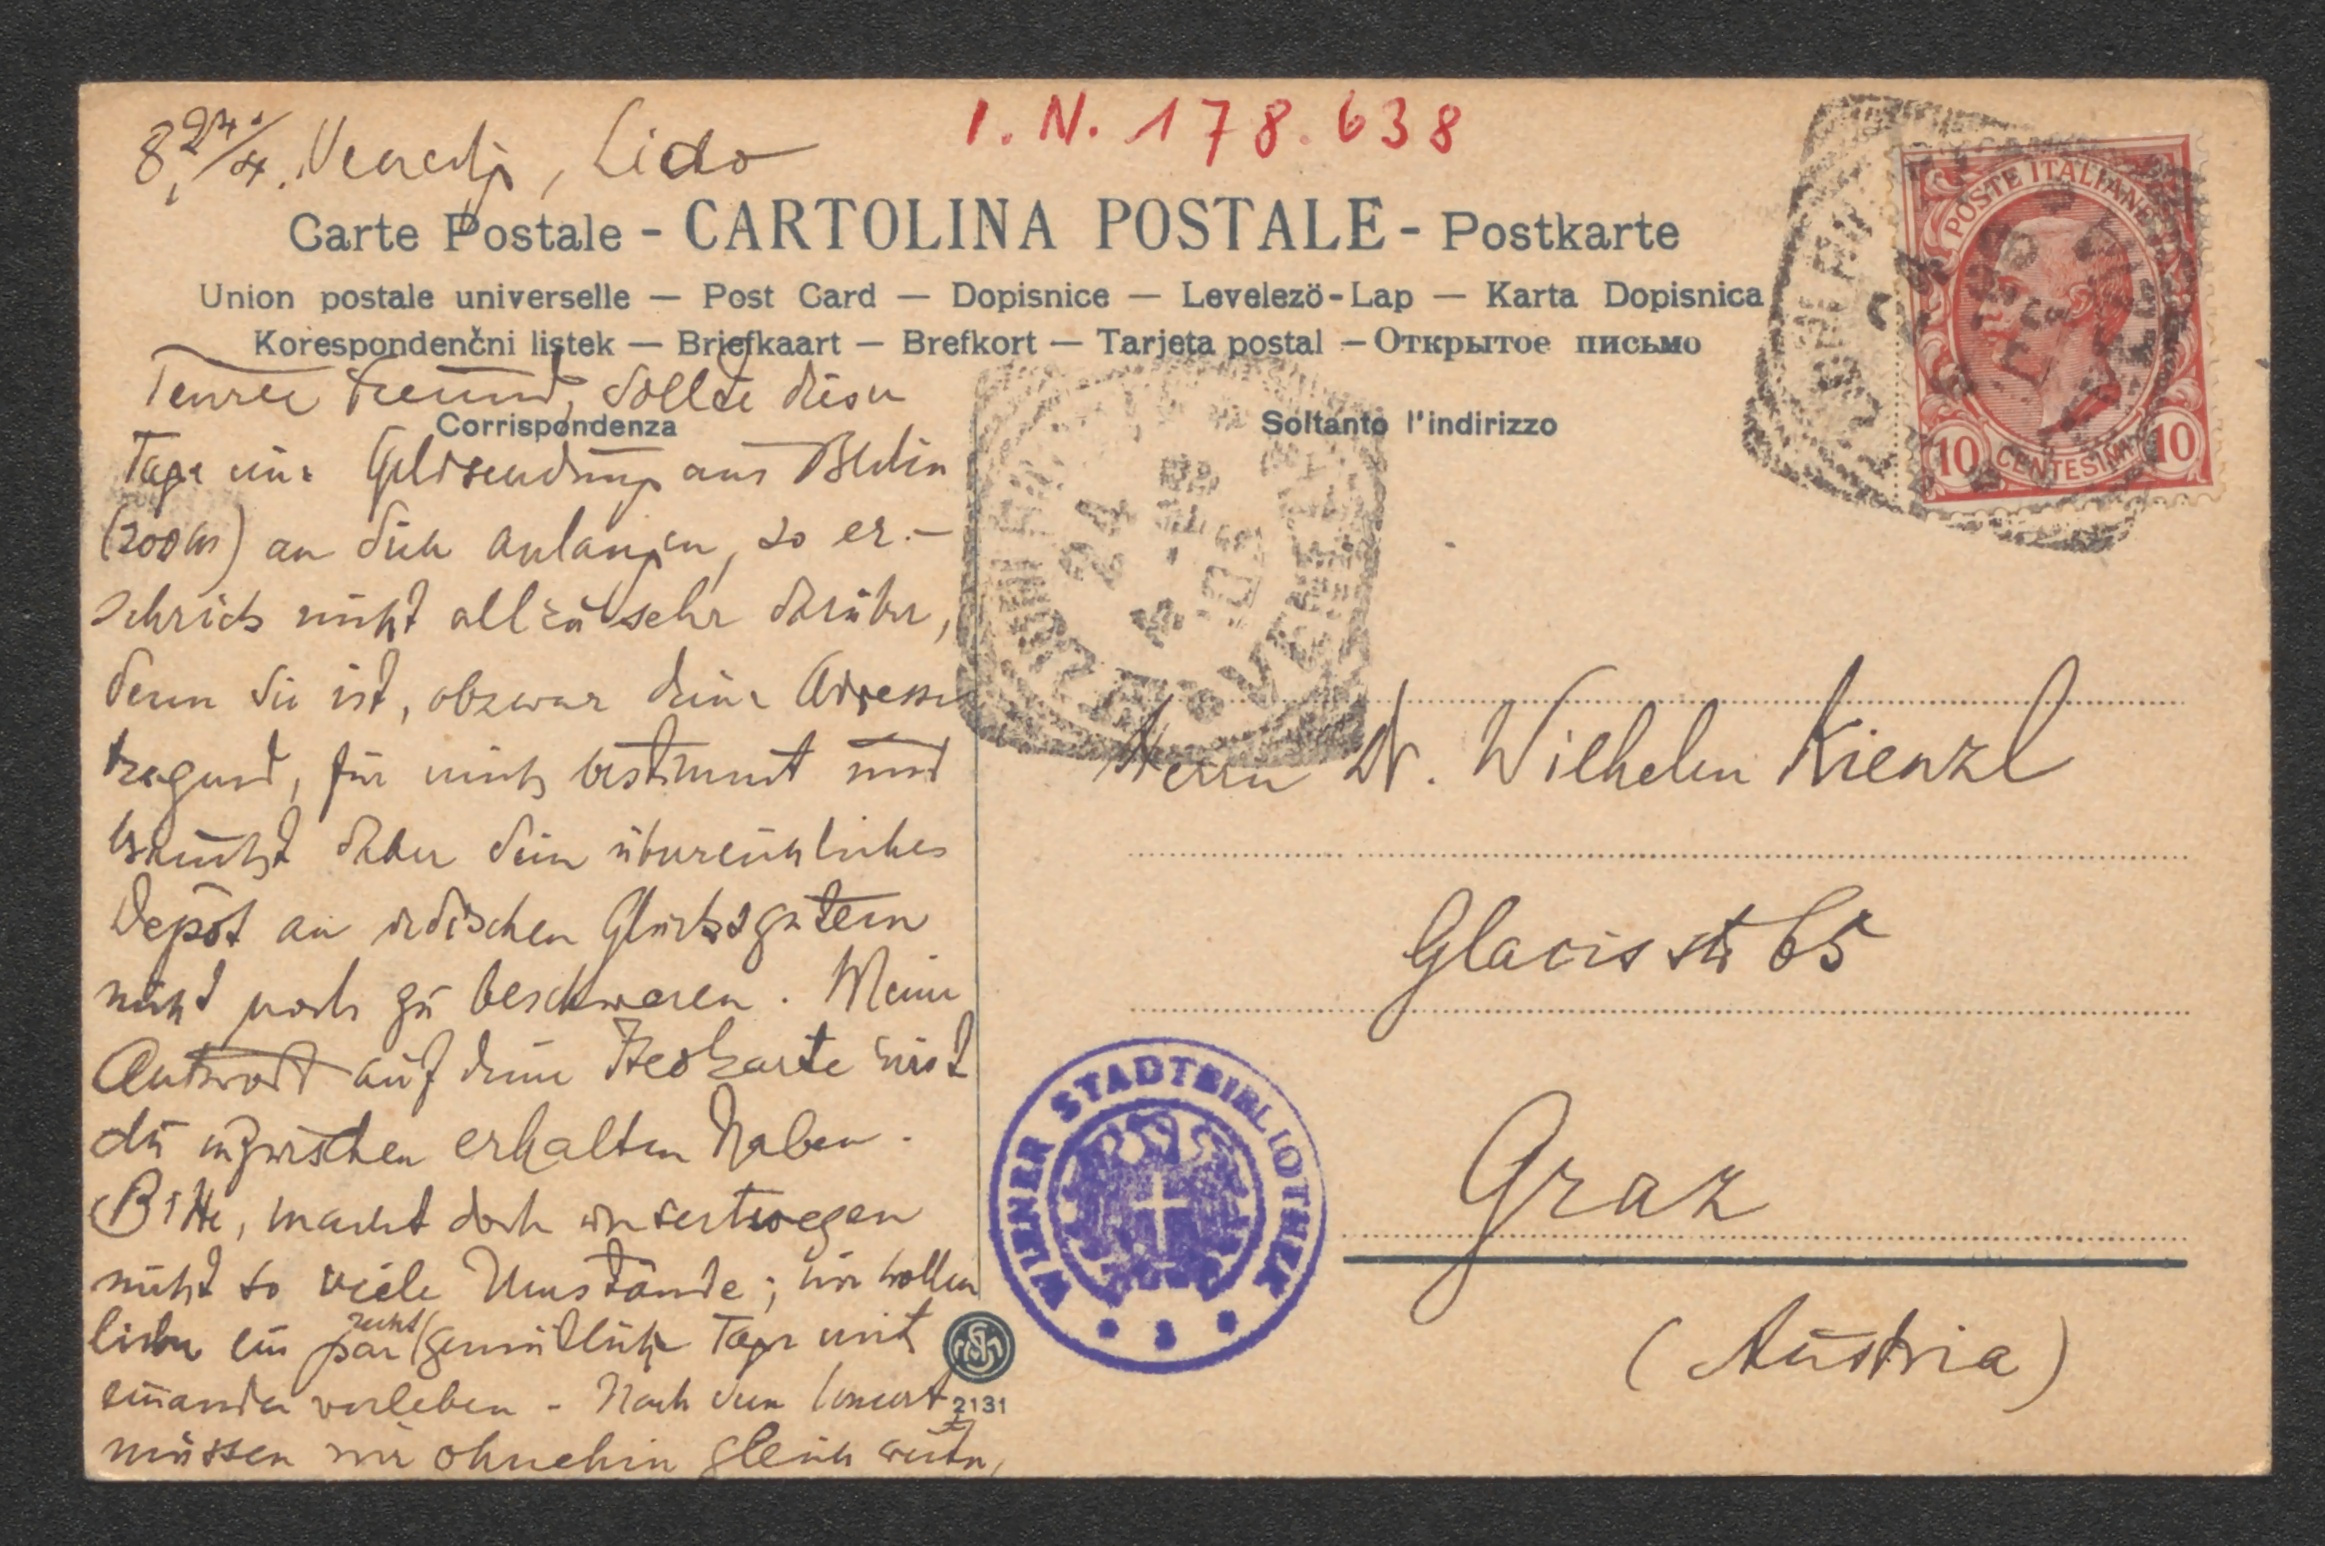 I. N. 178.638
8, 24./4. Venedig, Lido
Carte Postale - CARTOLINA POSTALE - Postkarte
Union postale universelle — Post Card — Dopisnice — Levelezö-Lap — Karta Dopisnica
Korespondenčni listek — Briefkaart — Brefkort — Tarjeta postal — Открытое письмо
Corrispondenza
Soltanto l'indirizzo
Teurer Freund, sollte dieser
Tage eine Geldsendung aus Berlin
(200 M) an dich anlangen, so er-
schrick nicht allzu sehr darüber,
denn sie ist, obzwar deine Adresse
tragend, für mich bestimmt und
braucht daher dein überreichliches
Depôt an irdischen Glücksgütern
nicht noch zu beschweren. Meine
Antwort auf deine Karte wirst
du inzwischen erhalten haben.
Bitte, macht doch unsertwegen
nicht so viele Umstände; wir wollen
lieber ein par recht gemütliche Tage mit
einander verleben - Nach dem Concert
müssen wir ohnehin gleich weiter,
POSTE ITALIANE
10 CENTESIMI 10
24
4
VENEZIA
Herrn Dr. Wilhelm Kienzl
Glacisstr 65
Graz
(Austria)
WIENER STADTBIBLIOTHEK
2131